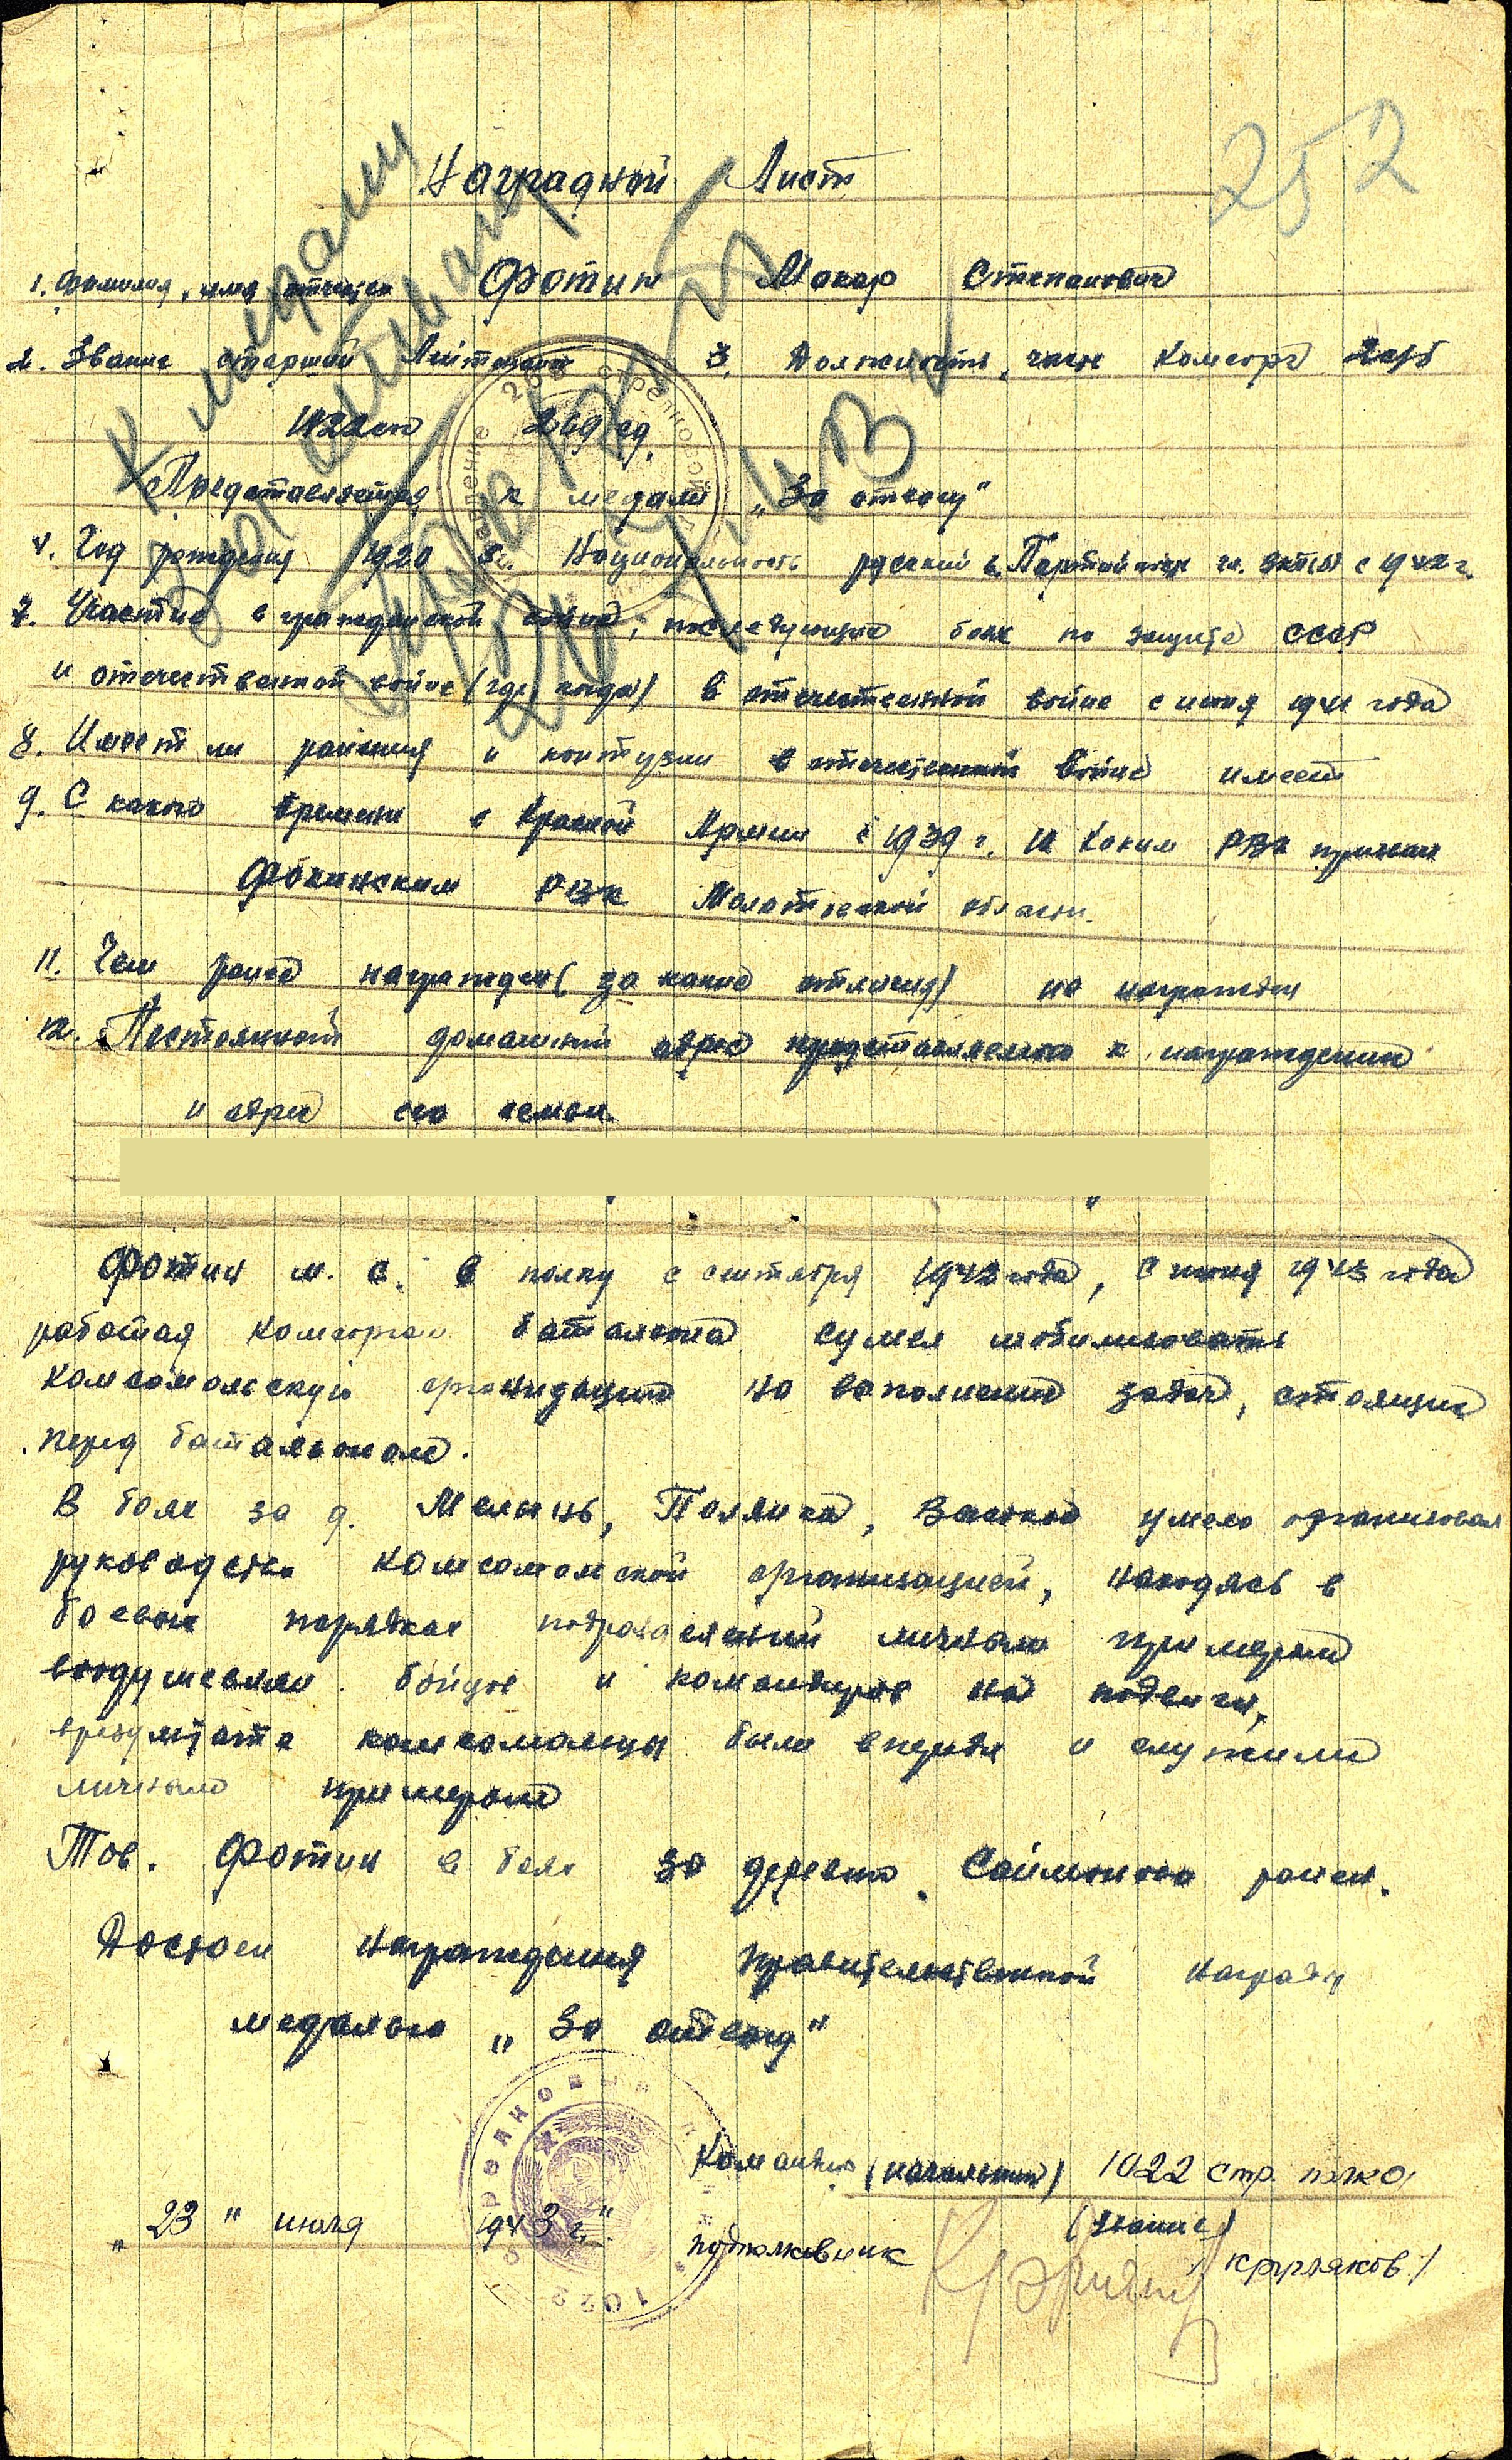 252
Наградной Лист
К медали
За отвагу
1. Фамилия, имя отчество Фотин Макар Степанович
2. Звание старший Лейтенант 3. Должность, часть Комсорг 2 сб
1022 сп 269 сд.
Представляется к медали „За отвагу"
4. Год рождения 1920 5. Национальность русский 6. Партийность чл. ВКП(б) с 1942 г.
7. Участие в гражданской войне, последующие боях по защите СССР
и отечественной войне (где, когда) в отечественной войне с июня 1941 года
8. Имеет ли ранения и контузии в отечественной войне имеет
9. С какого времени в Красной Армии с 1939 г. 10 Каким РВК призван
Фокинским РВК Молотовской области.
11. Чем ранее награжден (за какие отличия) не награжден
12. Постоянный домашний адрес представляемого к награждению
и адрес его семьи.
Фотин М. С. в полку с сентября 1942 года, с июня 1943 года
работая комсоргом батальона сумел мобилизовать
комсомольскую организацию на выполнение задач, стоящих
перед батальоном.
В боях за д. Мелынь, Полянка, Высокое умело организовал
руководство комсомольской организацией, находясь в
боевых порядках подразделений личным примером
воодушевлял бойцов и командиров на подвиги,
в результате комсомольцы были впереди и служили
личным примером
Тов. Фотин в боях за деревню ранен.
Достоен награждения правительственной награды
медалью „За отвагу"
Командир (начальник) 1022 стр. полка
„23" июля 1943 г." подполковник /Кругляков/